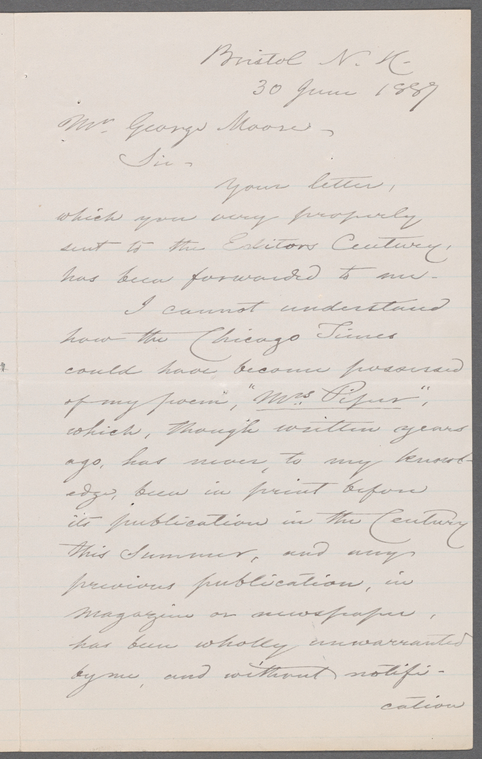 Bristol N. H.
30 June 1887
Mr. George Moore,
Sir -
Your letter,
which you very properly
sent to the Editors Century,
has been forwarded to me -
I cannot understand
how the Chicago Times
could have become possessed
of my poem, "Mrs Piper",
which, though written years
ago, has never, to my knowl-
edge, been in print before
its publication in the Century
this Summer, and any
previous publication, in
magazine or newspaper,
has been wholly unwarranted
by me, and without notifi-
cation